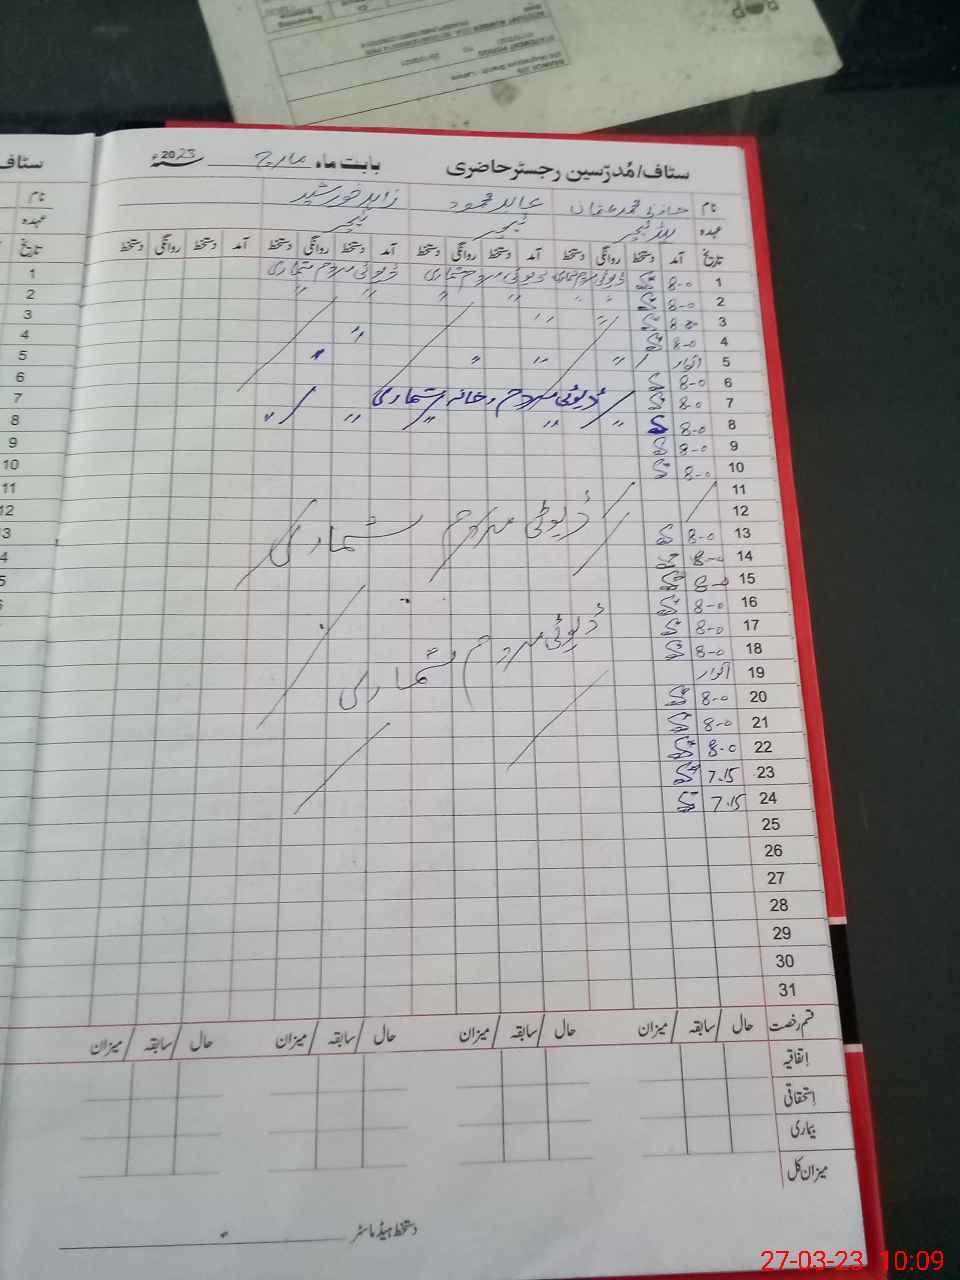 سٹاف/مُدرّسین رجسٹر حاضری بابت ماہ مارچ 2023ء
نام محمد عثمان عابد محمود زاہد خورشید
عہدہ ٹیچر ٹیچر
تاریخ آمد دستخط روانگی دستخط آمد دستخط روانگی دستخط آمد دستخط روانگی دستخط آمد دستخط روانگی دستخط
1 8-0 ڈیوٹی مردم شماری ڈیوٹی مردم شماری ڈیوٹی مردم شماری
2 8-0 " " " " "
3 8-0 " "
4 8-0 "
5 اتوار " " " "
6 8-0
7 8-0 ڈیوٹی مردم خانہ شماری
8 8-0 " " " " "
9 8-0
10 8-0
11
12 ڈیوٹی مردم شماری
13 8-0
14 8-0
15 8-0
16 8-0
17 8-0 ڈیوٹی مردم شماری
18 8-0
19 اتوار
20 8-0
21 8-0
22 8-0
23 7.15
24 7.15
25
26
27
28
29
30
31
قسم رخصت حال / سابقہ / میزان حال / سابقہ / میزان حال / سابقہ / میزان حال / سابقہ / میزان
اتفاقیہ
استحقاقی
بیماری
میزان کل
دستخط ہیڈ ماسٹر
27-03-23 10:09